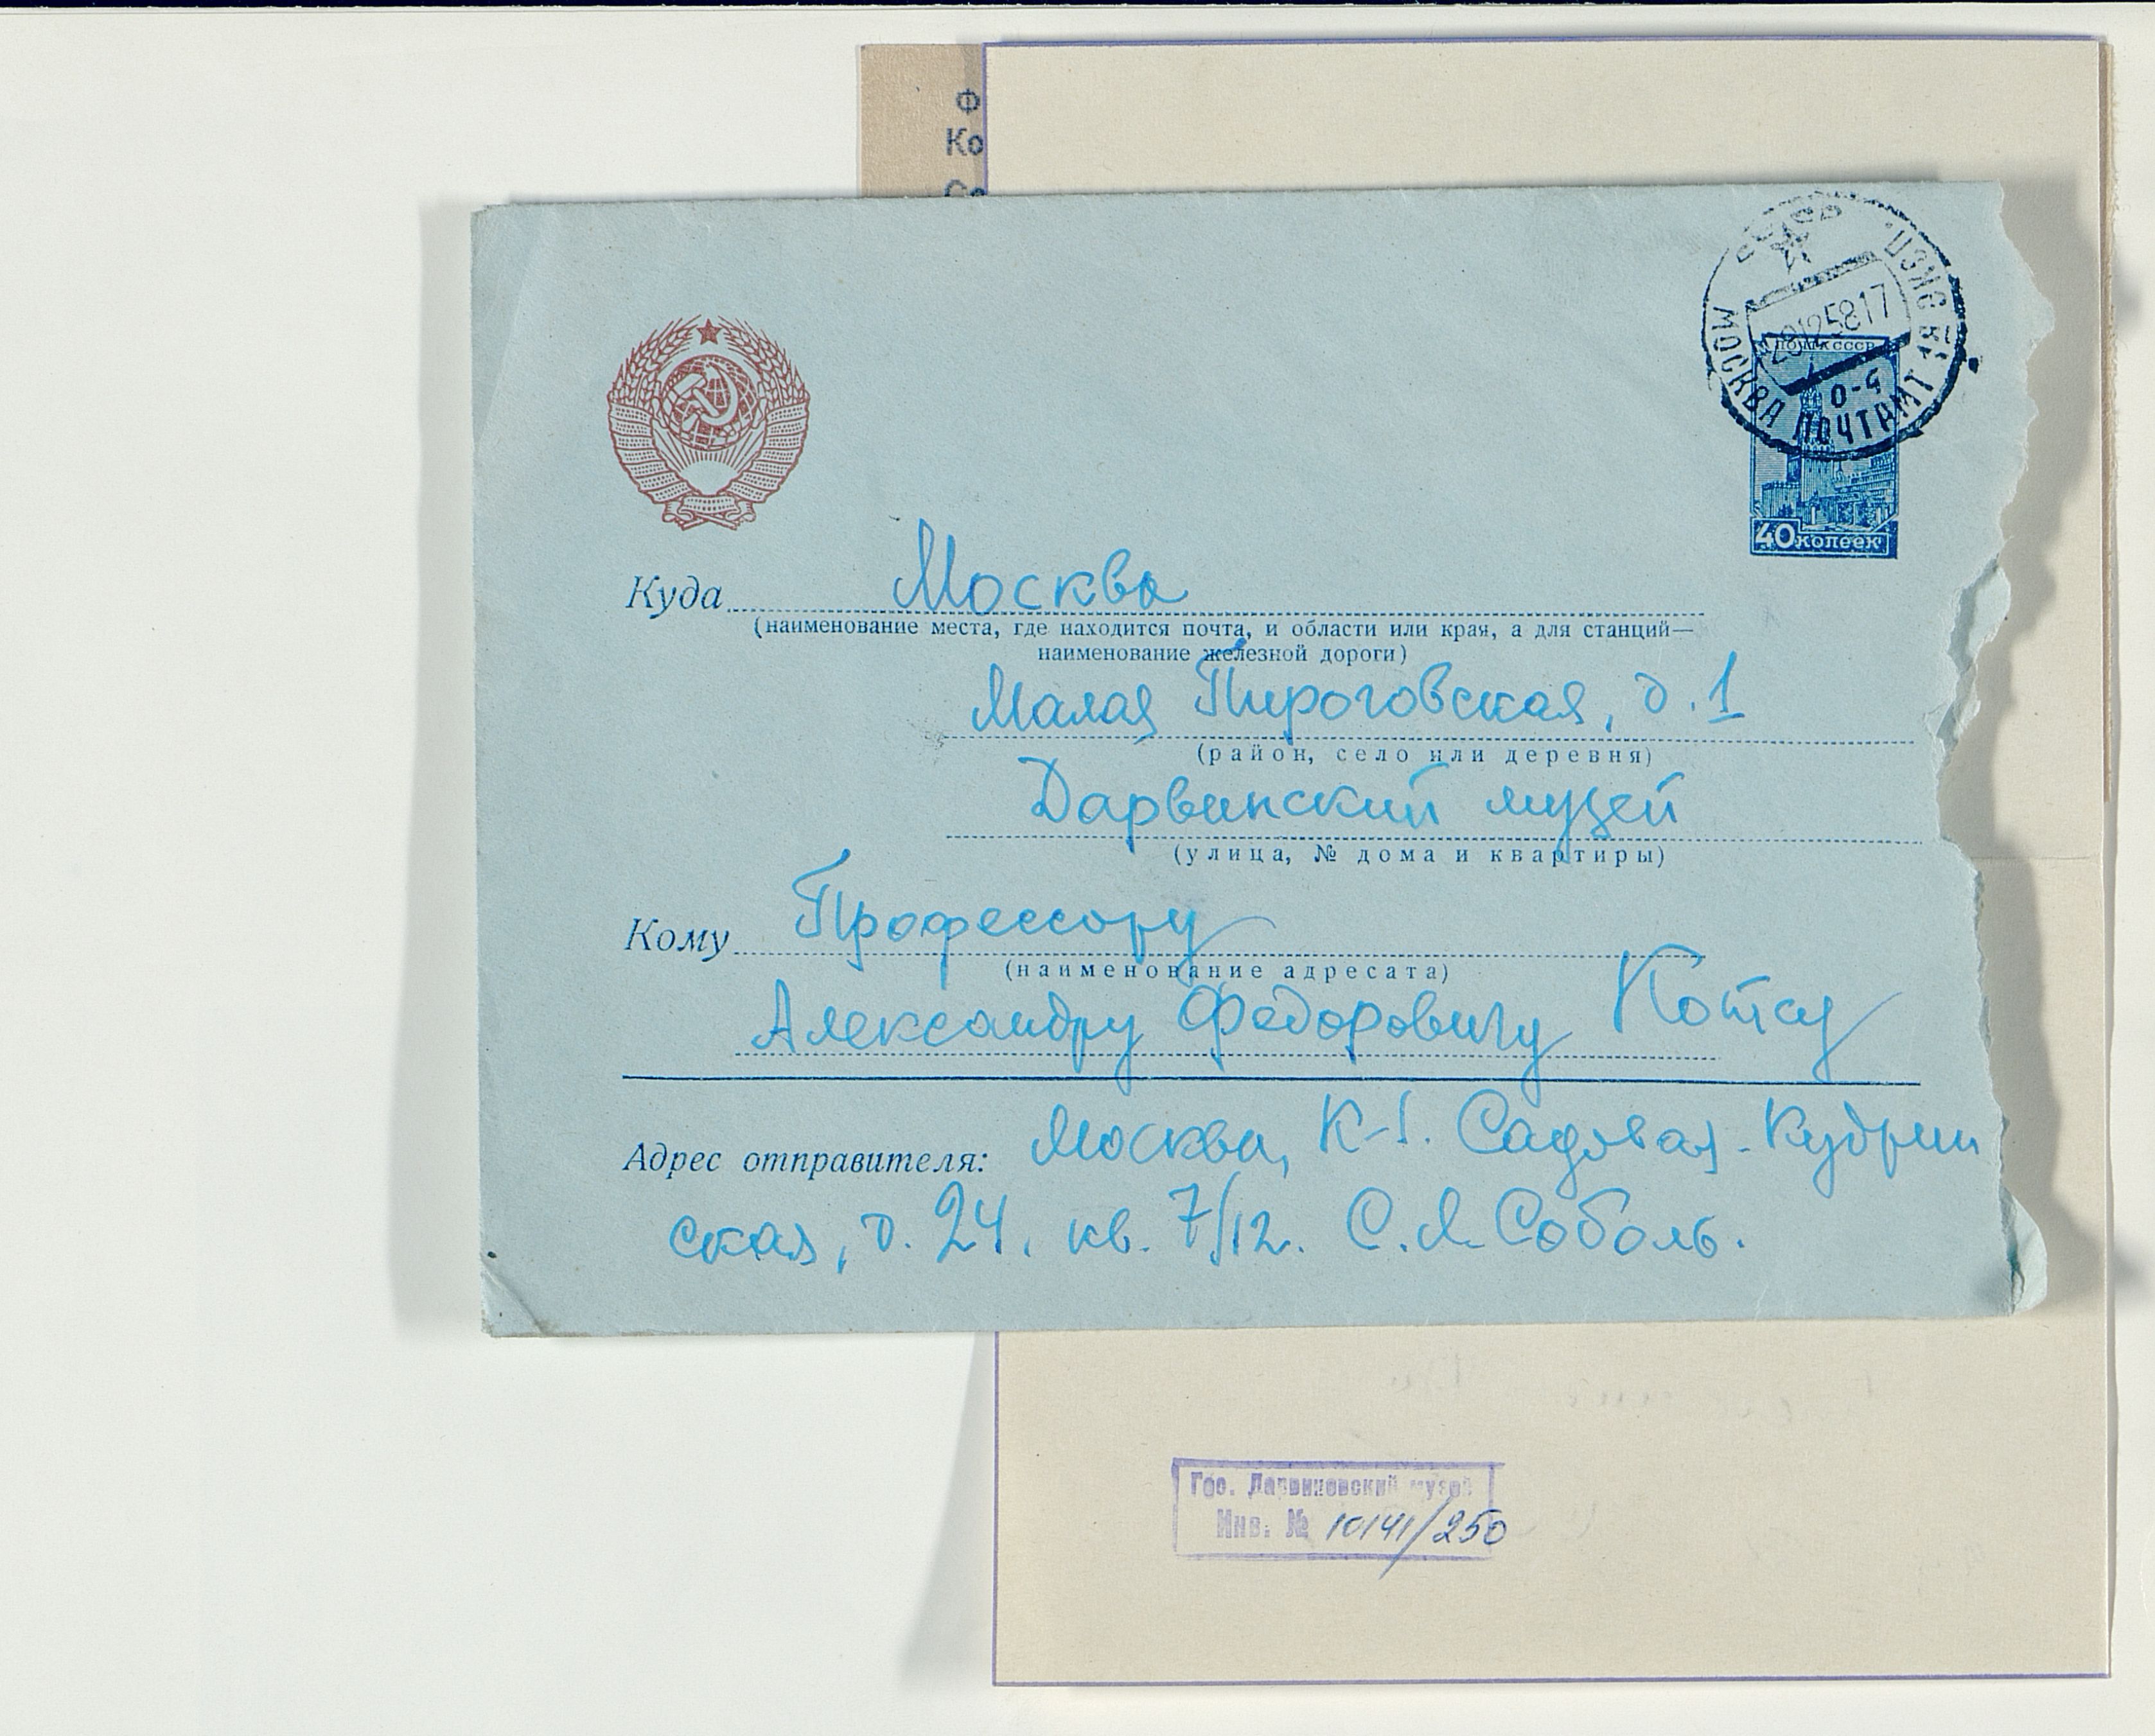 Ф
Ко
МОСКВА ПОЧТАМТ
28125817
0-9
ПОЧТА СССР
40 копеек
Куда Москва
(наименование места, где находится почта, и области или края, а для станций—
наименование железной дороги)
Малая Пироговская, д. 1
(район, село или деревня)
Дарвинский музей
(улица, № дома и квартиры)
Кому Профессору
(наименование адресата)
Александру Федоровичу Котсу
Адрес отправителя: Москва, К-1. Садовая-Кудрин
ская, д. 24. кв. 7/12. С. Л. Соболь.
Гос. Дарвиновский музей
Инв. № 10141/250